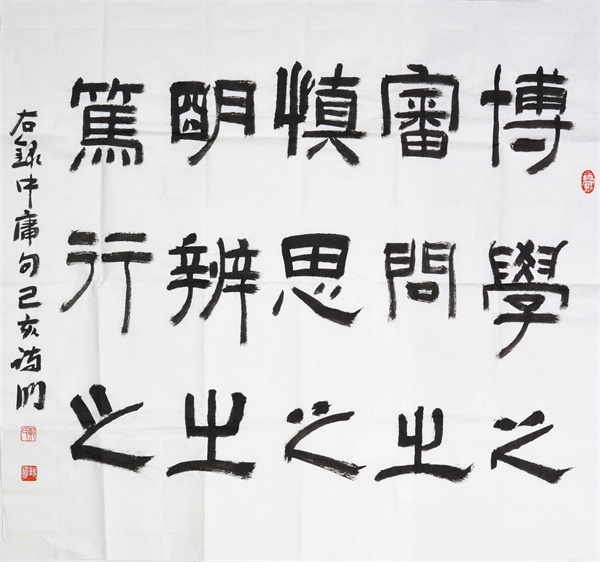 博學之
審問之
慎思之
明辨之
篤行之
右錄中庸句己亥